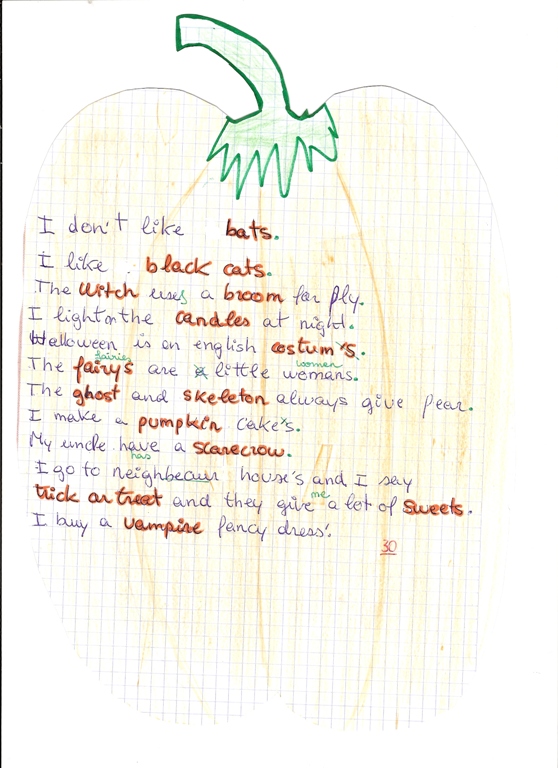 I don't like bats.
I like black cats.
The witch uses a broom for fly.
I light on the candles at night.
Halloween is an english costum's.
fairies women
The fairy's are little womans.
The ghost and skeleton always give fear.
I make a pumpkin cake's.
My uncle have a scarecrow.
has
I go to neighbeaur house's and I say
me
trick or treat and they give a lot of sweets.
I buy a vampire fancy dress.
30